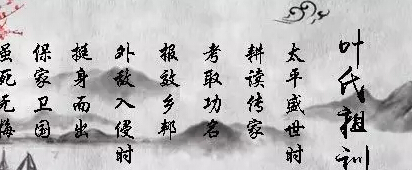 叶氏祖训
太平盛世时
耕读传家
考取功名
报效乡邦
外敌入侵时
挺身而出
保家卫国
虽死无悔